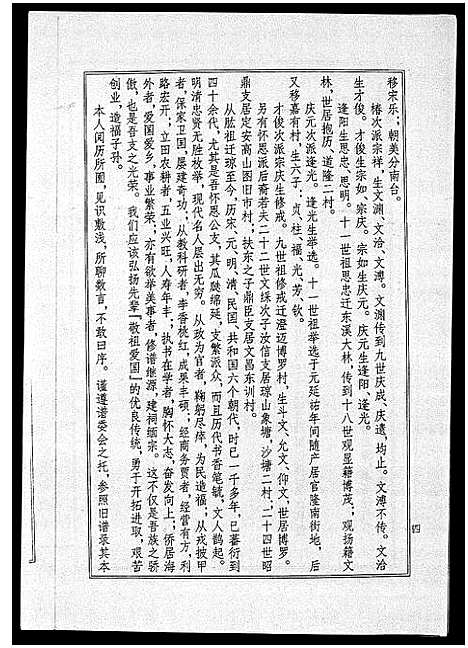 移宋乐;朝美分南台。
椿次派宗祥,生文渊、文洽、文溥。文渊传到九世庆成、庆遗,均止。文溥不传。文洽
生才俊。才俊生宗如、宗庆。宗如生庆元。庆元生逢阳、逢光。
逢阳生思忠、思明。十一世祖思忠迁东溪大林,传到十八世观显籍博茂;观扬籍文
林,世居抱历、道隆二村。
庆元次派逢光。逢光生举选。十一世祖举选于元延祐年间随产居官隆南街地,后
又移嘉有村,生六子:贞、柱、福、光、芳、钦。
才俊次派宗庆生修戒。九世祖修戒迁澄迈博罗村,生斗文、允文、仰文,世居博罗。
另有怀恩派后裔若夫二十二世文绥次子汝信支居琼山象塘,沙塘二村、二十四世昭
鼎支居定安高山图旧市村;扶东之子鼎臣支居文昌东训村。
从肱祖迁琼至今,历宋、元、明、清、民国、共和国六个朝代,时已一千多年,已蕃衍到
四十余代,尤其是吾怀恩公支,其瓜瓞绵延,支繁派众,而且历代书香笔毓,文人鹊起。
明清忠贤无胜枚举,现代名人层出无穷。从政为官者,鞠躬尽瘁,为民造福;从戎披甲
者,保家卫国,屡建奇功。从教科研者,李香桃红,成果丰硕;经商务贾者,经营有方,利
路宏开;立田农耕者,五业兴旺,人寿年丰;执书在学者,胸怀大志,奋发向上;侨居海
外者,爱国爱乡,事业繁荣,亦有欲举美事者,修谱继源,建祠缅宗。这不仅是吾族之骄
傲,也是吾支之光荣。我们应该弘扬先辈『敬祖爱国』的优良传统,勇于开拓进取,艰苦
创业,造福子孙。
本人阅历所囿,见识敷浅,所聊数言,不敢曰序。谨遵谱委会之托,参照旧谱录其本
四